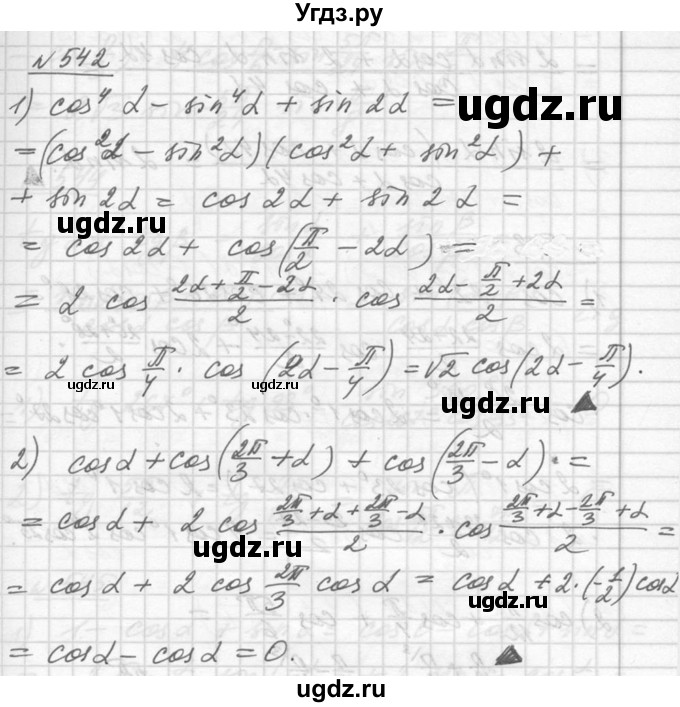 Угдз.ру
№542
1) cos⁴ α − sin⁴α + sin 2α =
ugdz.ru
= (cos²α − sin²α)(cos²α + sin²α) +
+ sin 2α = cos 2α + sin 2α =
ugdz.ru
= cos 2α + cos(π/2 − 2α) =
= 2 cos (2α + π/2 − 2α)/2 · cos (2α − π/2 + 2α)/2 =
ugdz.ru
= 2 cos π/4 · cos (2α − π/4) = √2 cos(2α − π/4).
ugdz.ru
ugdz.ru
2) cos α + cos(2π/3 + α) + cos(2π/3 − α) =
= cos α + 2 cos (2π/3 + α + 2π/3 − α)/2 · cos (2π/3 + α − 2π/3 + α)/2 =
ugdz.ru
= cos α + 2 cos 2π/3 cos α = cos α + 2·(−1/2) cos α
ugdz.ru
= cos α − cos α = 0.
ugdz.ru
ugdz.ru